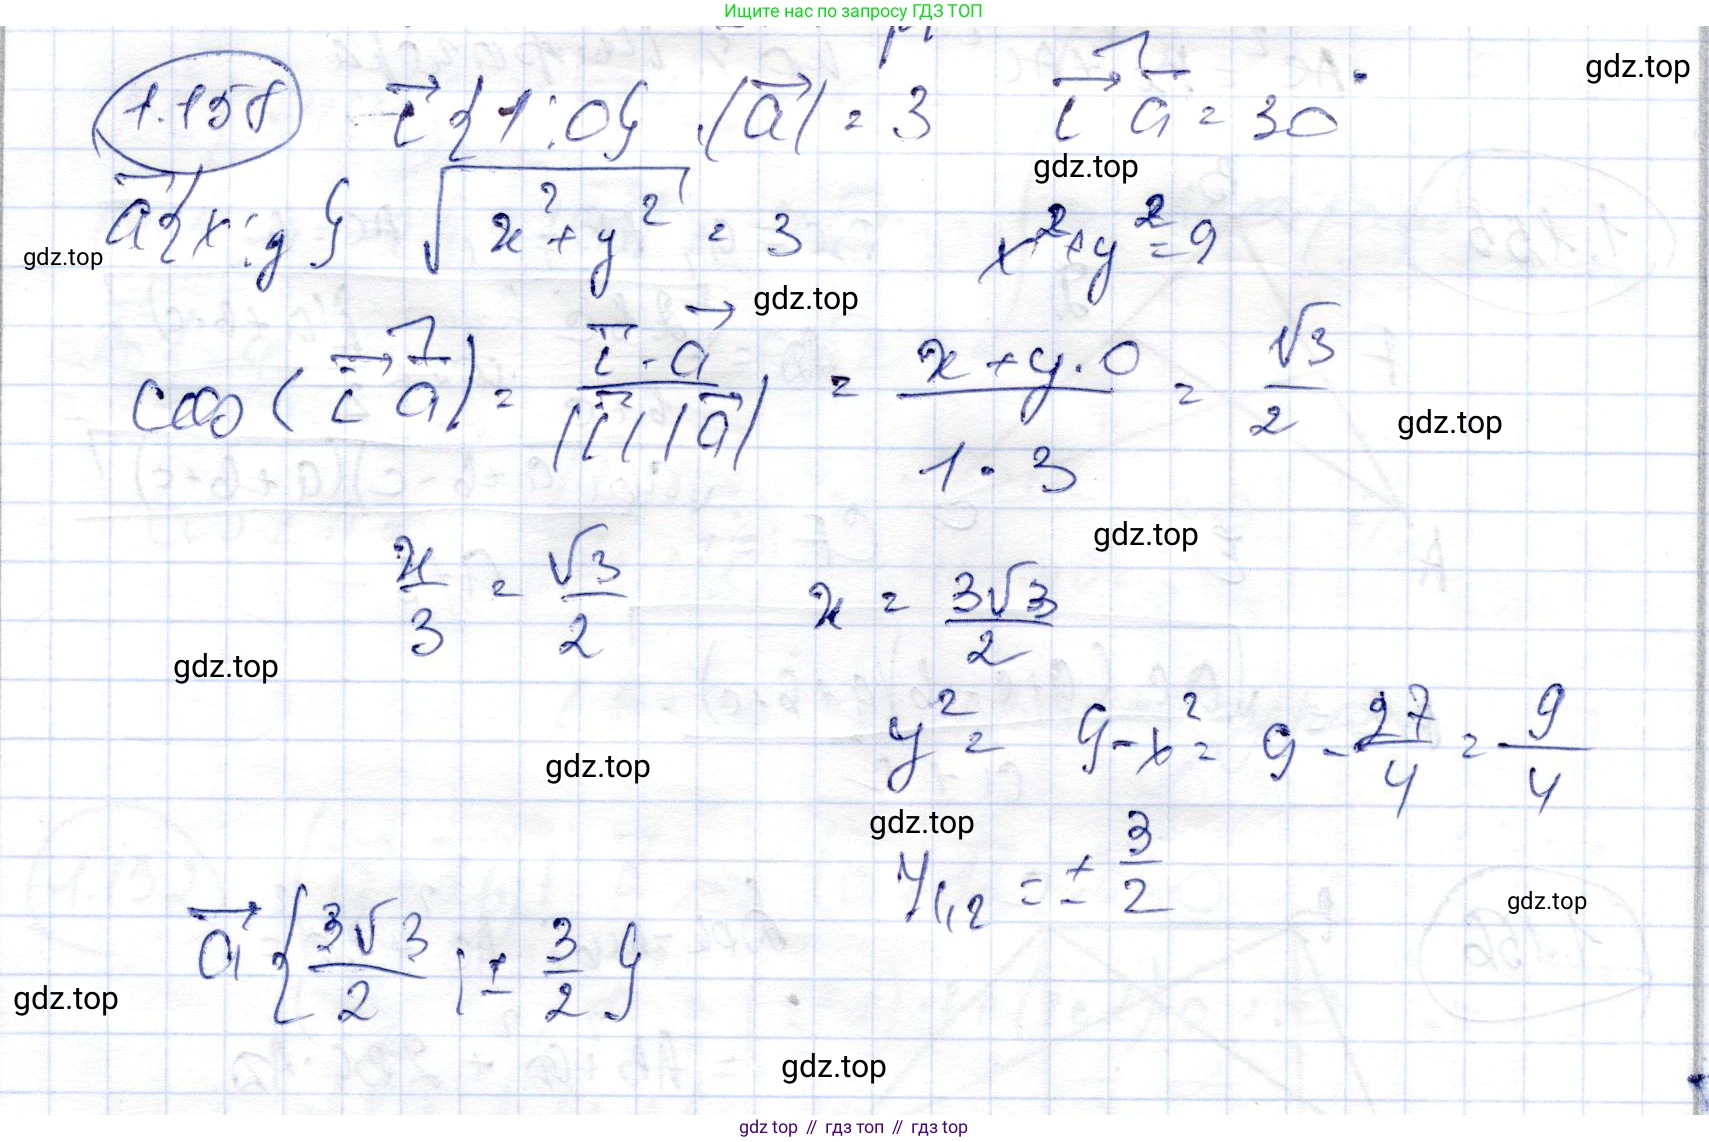 Ищите нас по запросу ГДЗ ТОП
1.158 i⃗ {1; 0} |a⃗| = 3 i⃗ a⃗ = 30°
gdz.top
gdz.top
a⃗ {x; y} √(x² + y²) = 3 x² + y² = 9
gdz.top
gdz.top
cos (i⃗ a⃗) = (i⃗ · a⃗)/(|i⃗| |a⃗|) = (x + y · 0)/(1 · 3) = √3/2
gdz.top
gdz.top
x/3 = √3/2 x = 3√3/2
gdz.top
y² = 9 - x² = 9 - 27/4 = 9/4
gdz.top
gdz.top
y₁,₂ = ± 3/2
gdz.top
a⃗ {3√3/2 ; ± 3/2}
gdz.top
gdz.top
gdz top // гдз топ // гдз top